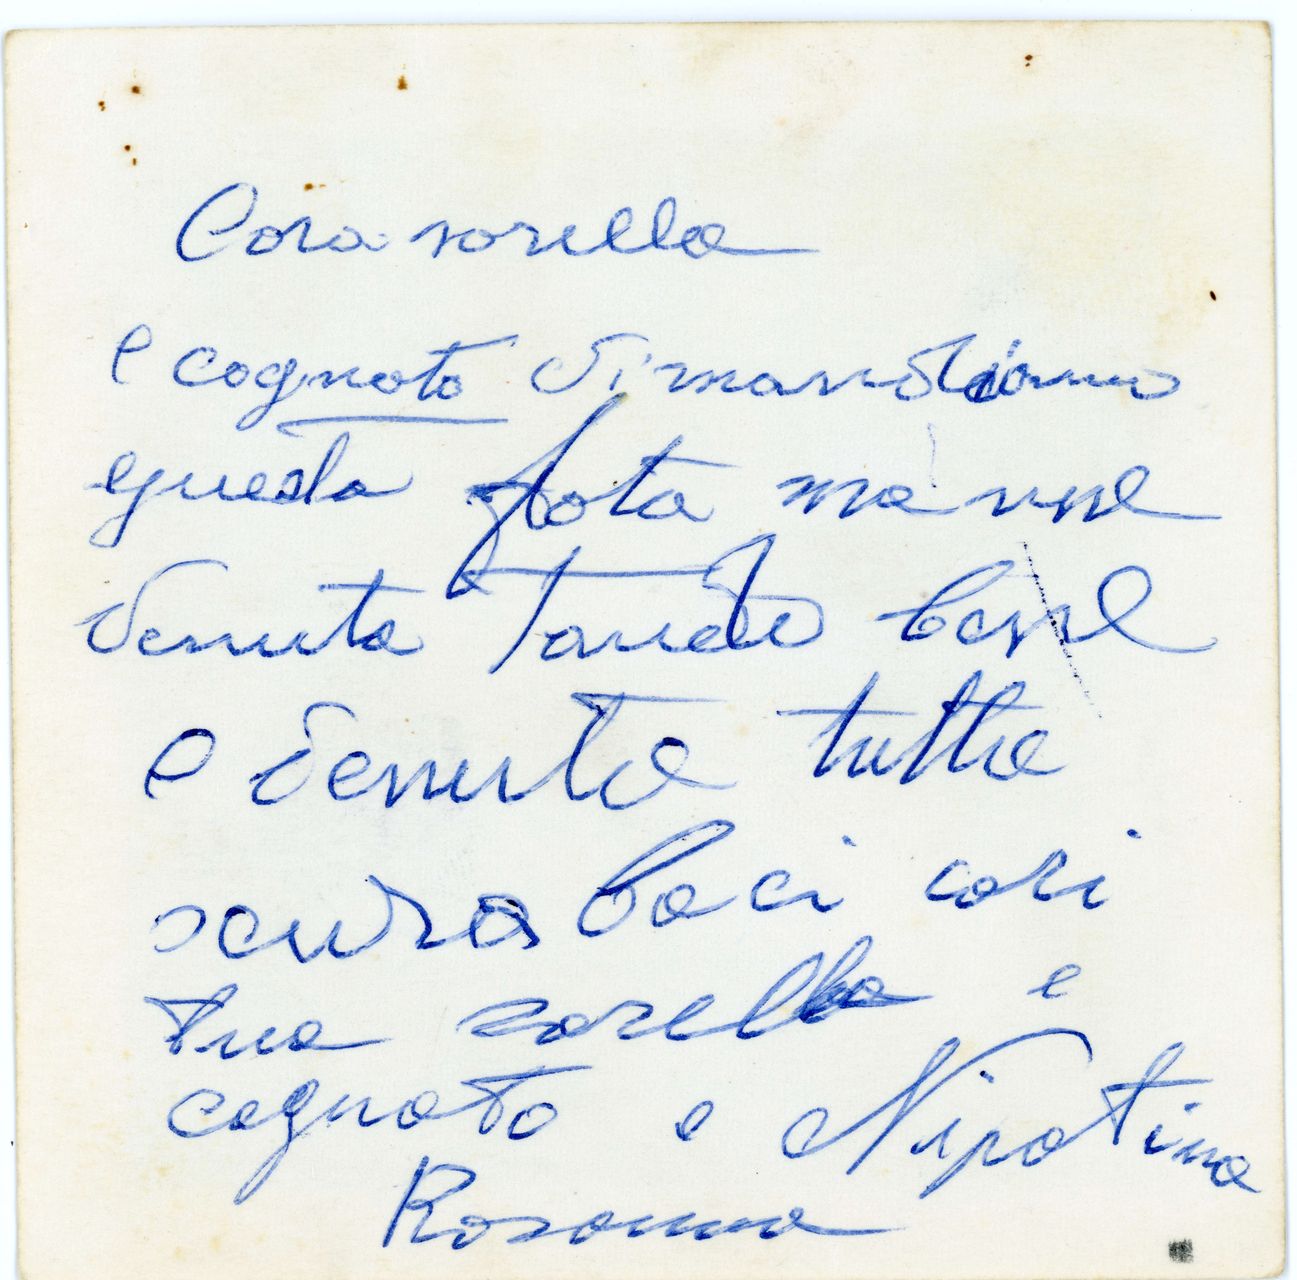 Cara sorella
e cognato Vi mandiamo
questa fota ma non è
venuta tanto bene
e venuta tutta
scura baci cari
tua sorella e
cognato e Nipotina
Rosanna